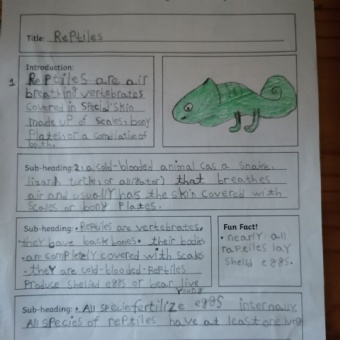 Title: Reptiles
Introduction:
1 Reptiles are air
breathing vertebrates
covered in special skin
made up of scales, bony
plates, or a combination of
both.
Sub-heading: a cold-blooded animal (as a snake,
lizard, turtle, or alligator) that breathes
air and usually has the skin covered with
scales or bony plates.
Sub-heading: • Reptiles are vertebrates.
they have backbones. their bodies
are completely covered with scales
• they are cold-blooded. Reptiles
Produce shelled eggs or bear live
young
Fun Fact!
• nearly all
raptiles lay
shelld eggs.
Sub-heading: • All species fertilize eggs internally
All species of reptiles have at least one lung